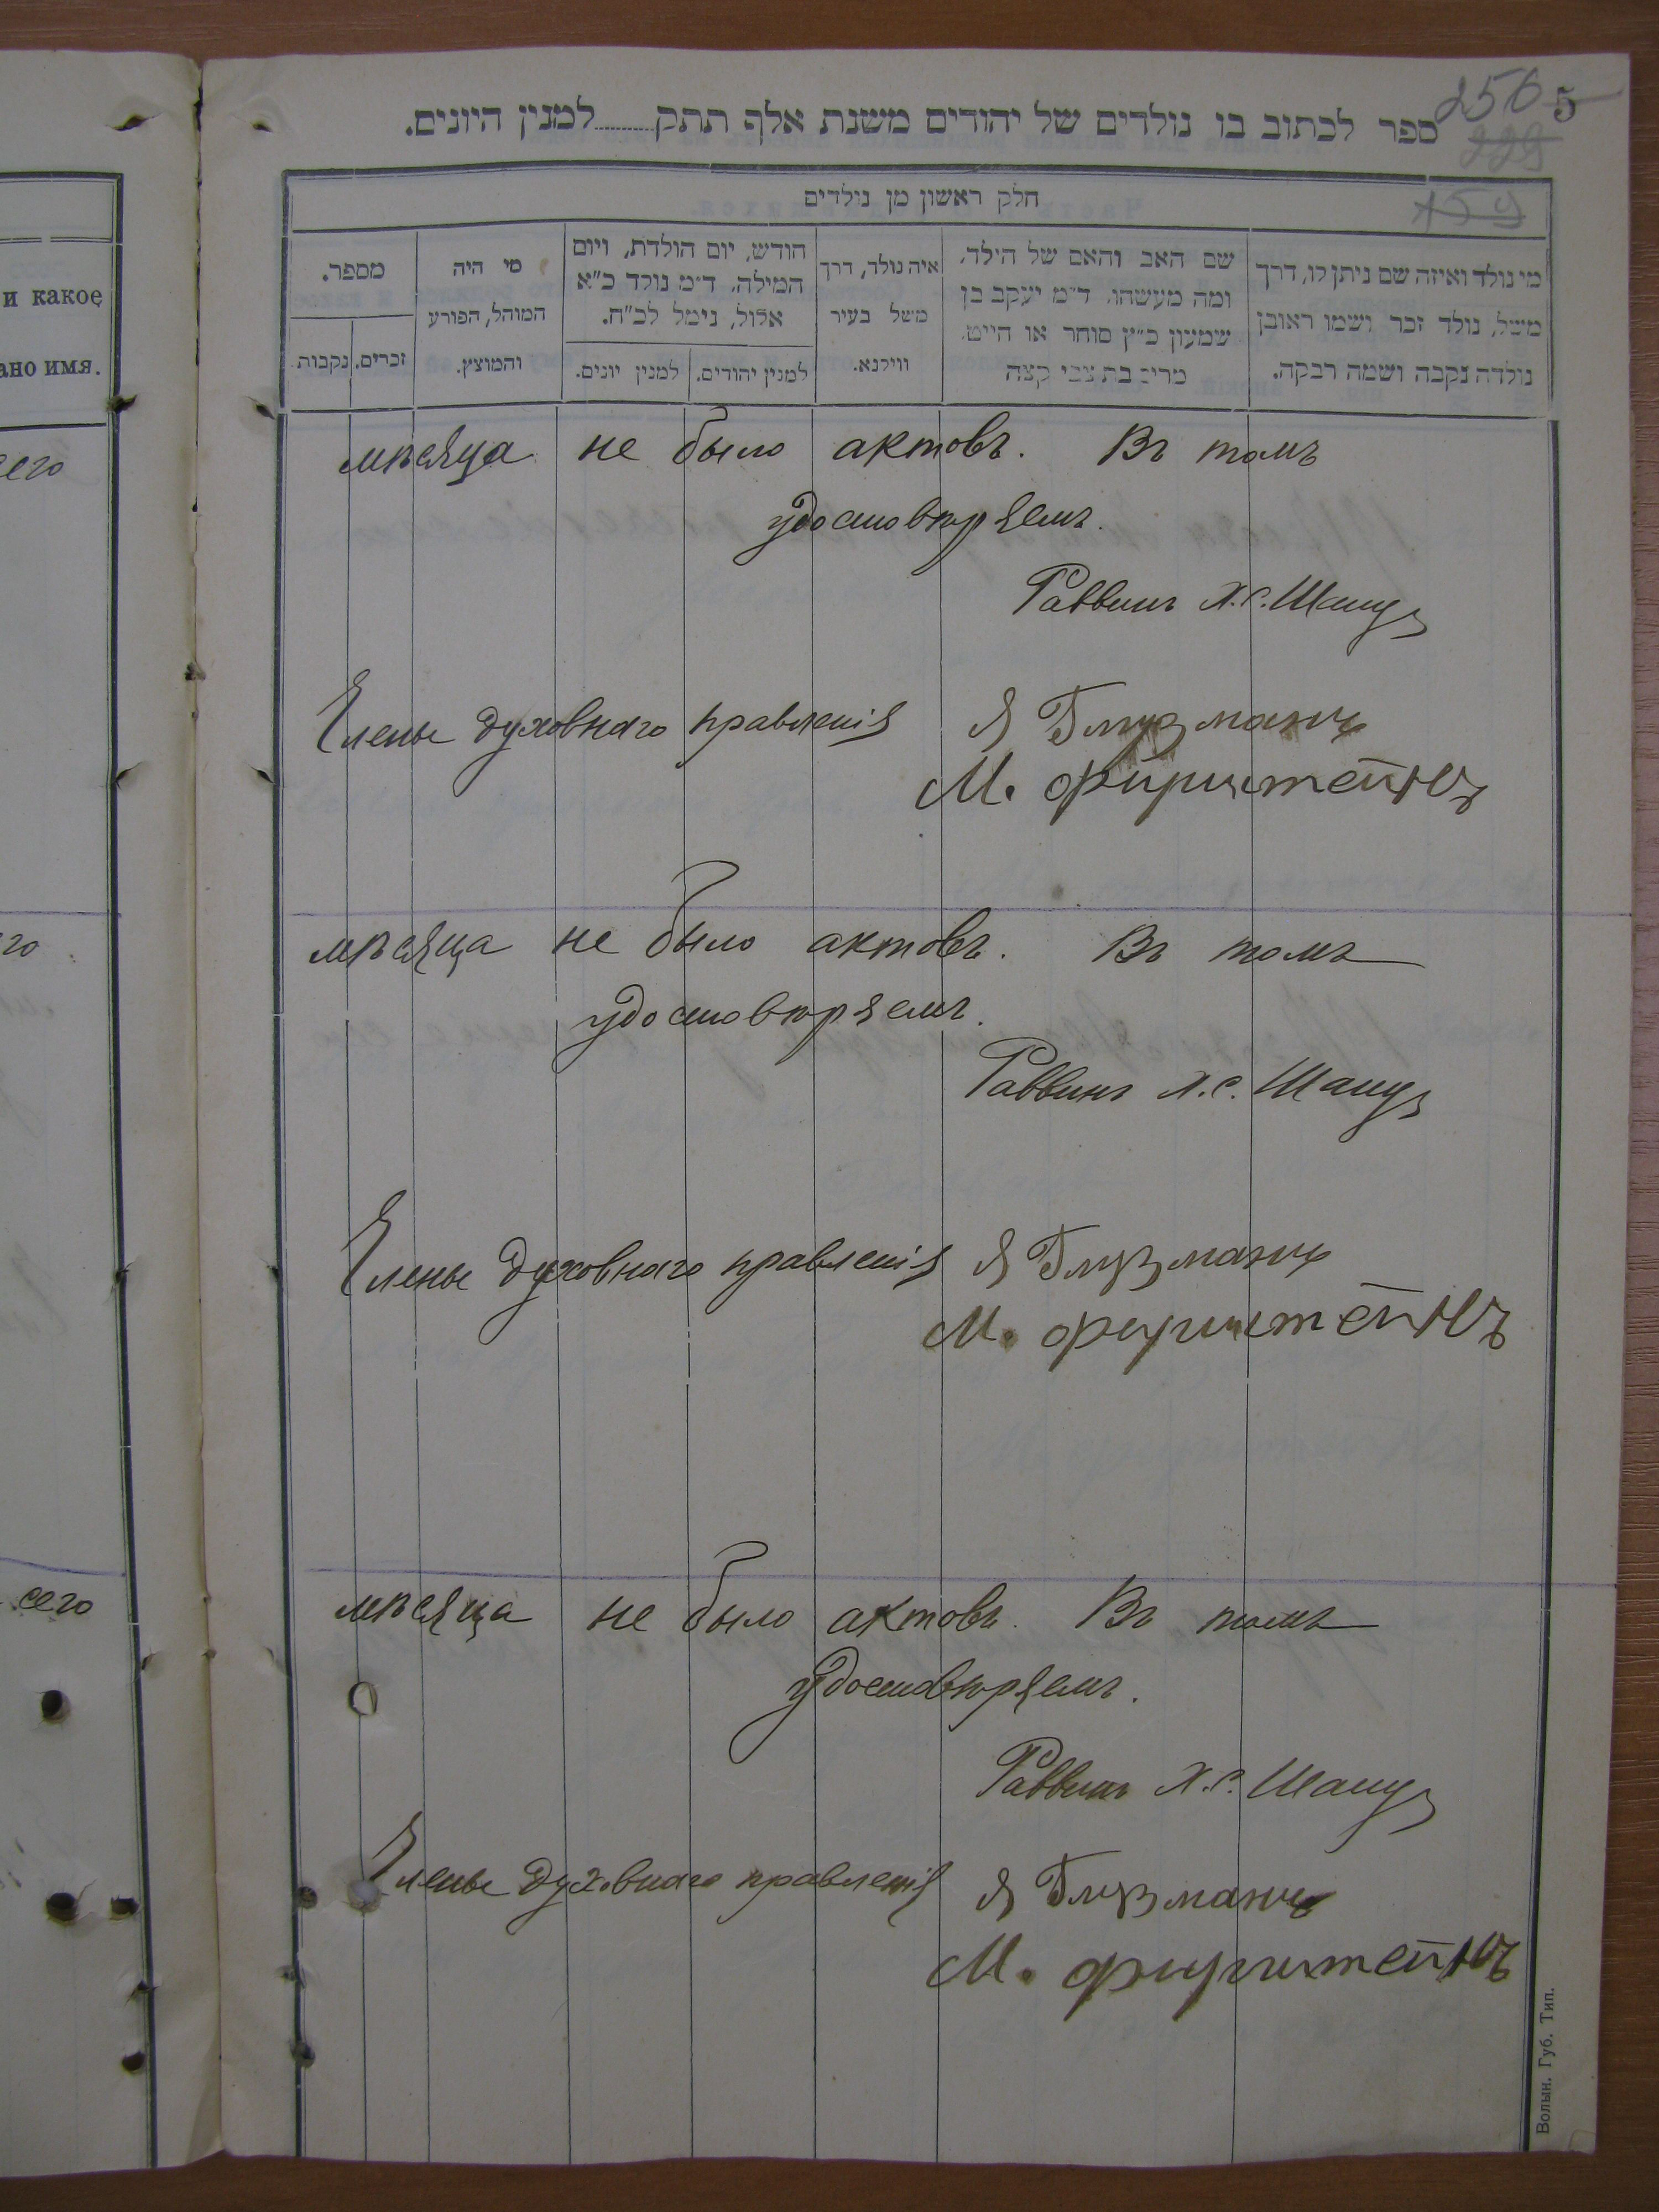 256 5
229
159
ספר לכתוב בו נולדים של יהודים משנת אלף תתק........למנין היונים.
חלק ראשון מן נולדים
מי נולד ואיזה שם ניתן לו, דרך
משל, נולד זכר ושמו ראובן
נולדה נקבה ושמה רבקה.
שם האב והאם של הילד,
ומה מעשהו. ד״מ יעקב בן
שמעון כ״ץ סוחר או חייט,
מרים בת צבי קצה
איה נולד, דרך
משל בעיר
ווילנא.
חודש, יום הולדת, ויום
המילה. ד״מ נולד כ״א
אלול, נימל לכ״ח.
למנין יהודים.
למנין יונים.
מי היה
המוהל, הפורע
והמוצץ.
מספר.
זכרים.
נקבות
и какое
ано имя.
сего
мѣсяца не было актовъ. Въ томъ
удостовѣряемъ.
Раввинъ Х.С.
Члены духовнаго правленія Я Глузманъ
М.
го
мѣсяца не было актовъ. Въ томъ
удостовѣряемъ.
Раввинъ Х.С.
Члены духовнаго правленія Я Глузманъ
М.
сего
мѣсяца не было актовъ. Въ томъ
удостовѣряемъ.
Раввинъ Х.С.
Члены духовнаго правленія Я Глузманъ
М.
Волын. Губ. Тип.